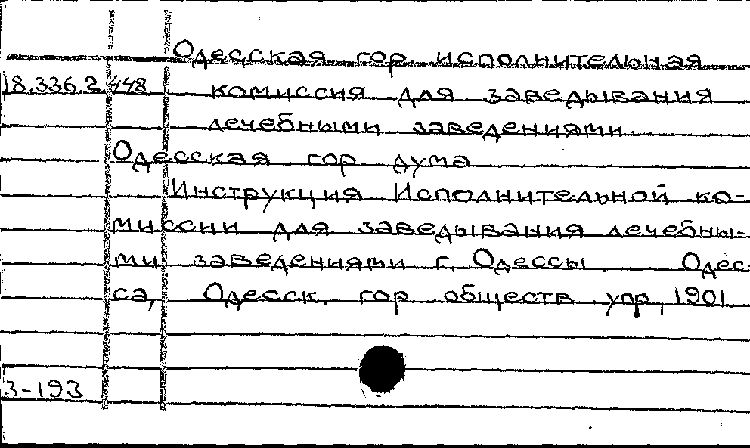 Одесская гор исполнительная
18.336.2.448 комиссия для заведывания
лечебными заведениями
Одесская гор дума
Инструкция Исполнительной ко-
миссии для заведывания лечебны-
ми заведениями г. Одессы. Одес-
са, Одесск. гор обществ упр, 1901
3-193